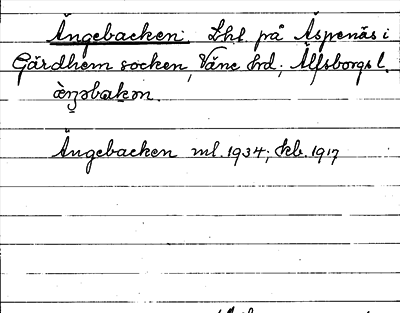 Ängebacken. Lht på Äspenäs i
Gärdhem socken, Väne hrd; Älfsborgs l.
ä̀ŋəbakən.
Ängebacken ml. 1934; kb. 1917